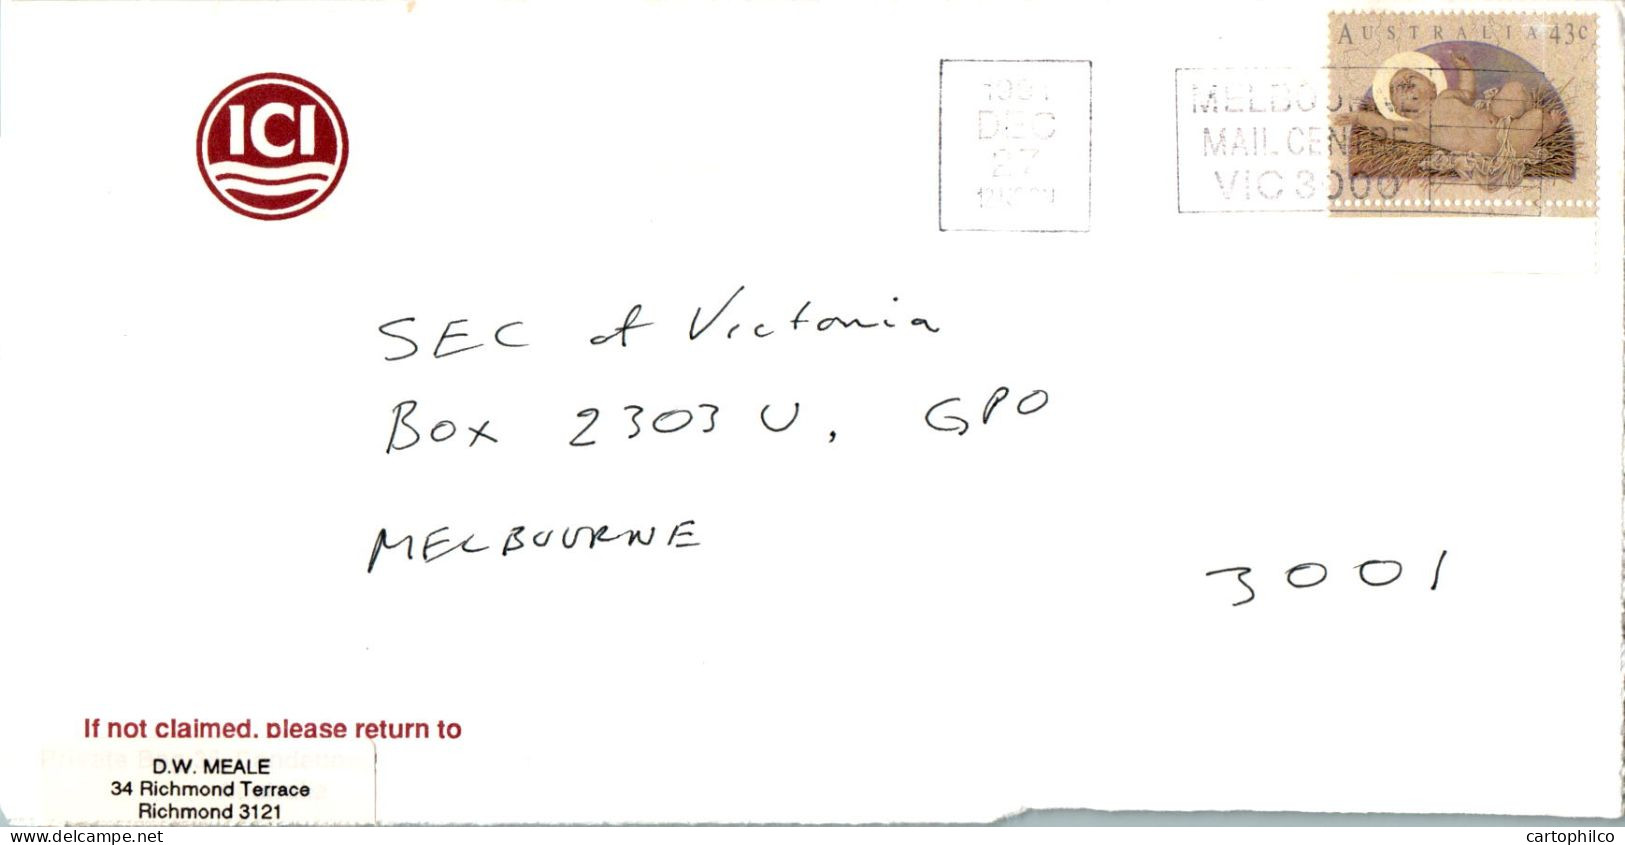 ICI
AUSTRALIA 43c
1991
DEC
27
MELBOURNE
MAIL CENTRE
VIC 3000
SEC of Victoria
Box 2303 U, GPO
MELBOURNE
3001
If not claimed, please return to
D.W. MEALE
34 Richmond Terrace
Richmond 3121
www.delcampe.net
cartophilco